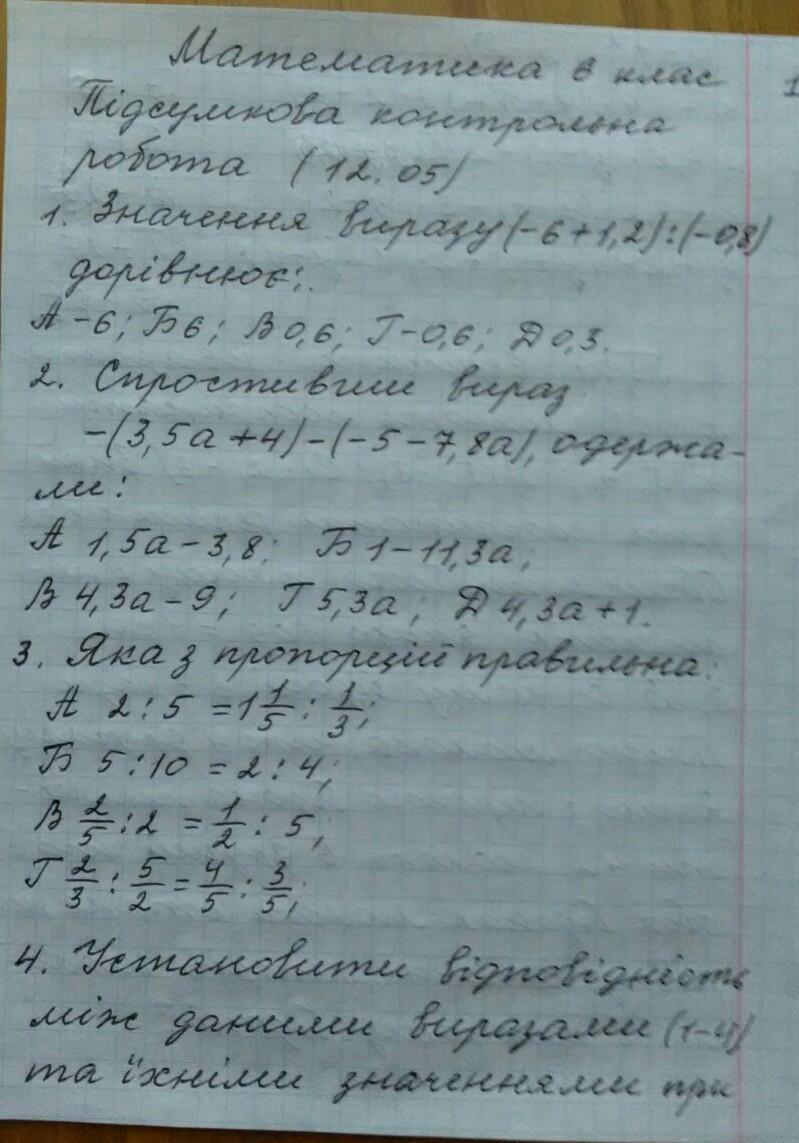 Математика 6 клас 1
Підсумкова контрольна
робота (12.05)
1. Значення виразу (-6+1,2):(-0,8)
дорівнює:
А -6; Б 6; В 0,6; Г -0,6; Д 0,3.
2. Спростивши вираз
-(3,5а+4)-(-5-7,8а), одержа-
ли:
А 1,5а-3,8; Б 1-11,3а;
В 4,3а-9; Г 5,3а; Д 4,3а+1.
3. Яка з пропорцій правильна:
А 2:5 = 1 1/5 : 1/3;
Б 5:10 = 2:4;
В 2/5 : 2 = 1/2 : 5;
Г 2/3 : 5/2 = 4/5 : 3/5;
4. Установити відповідність
між даними виразами (1-4)
та їхніми значеннями при